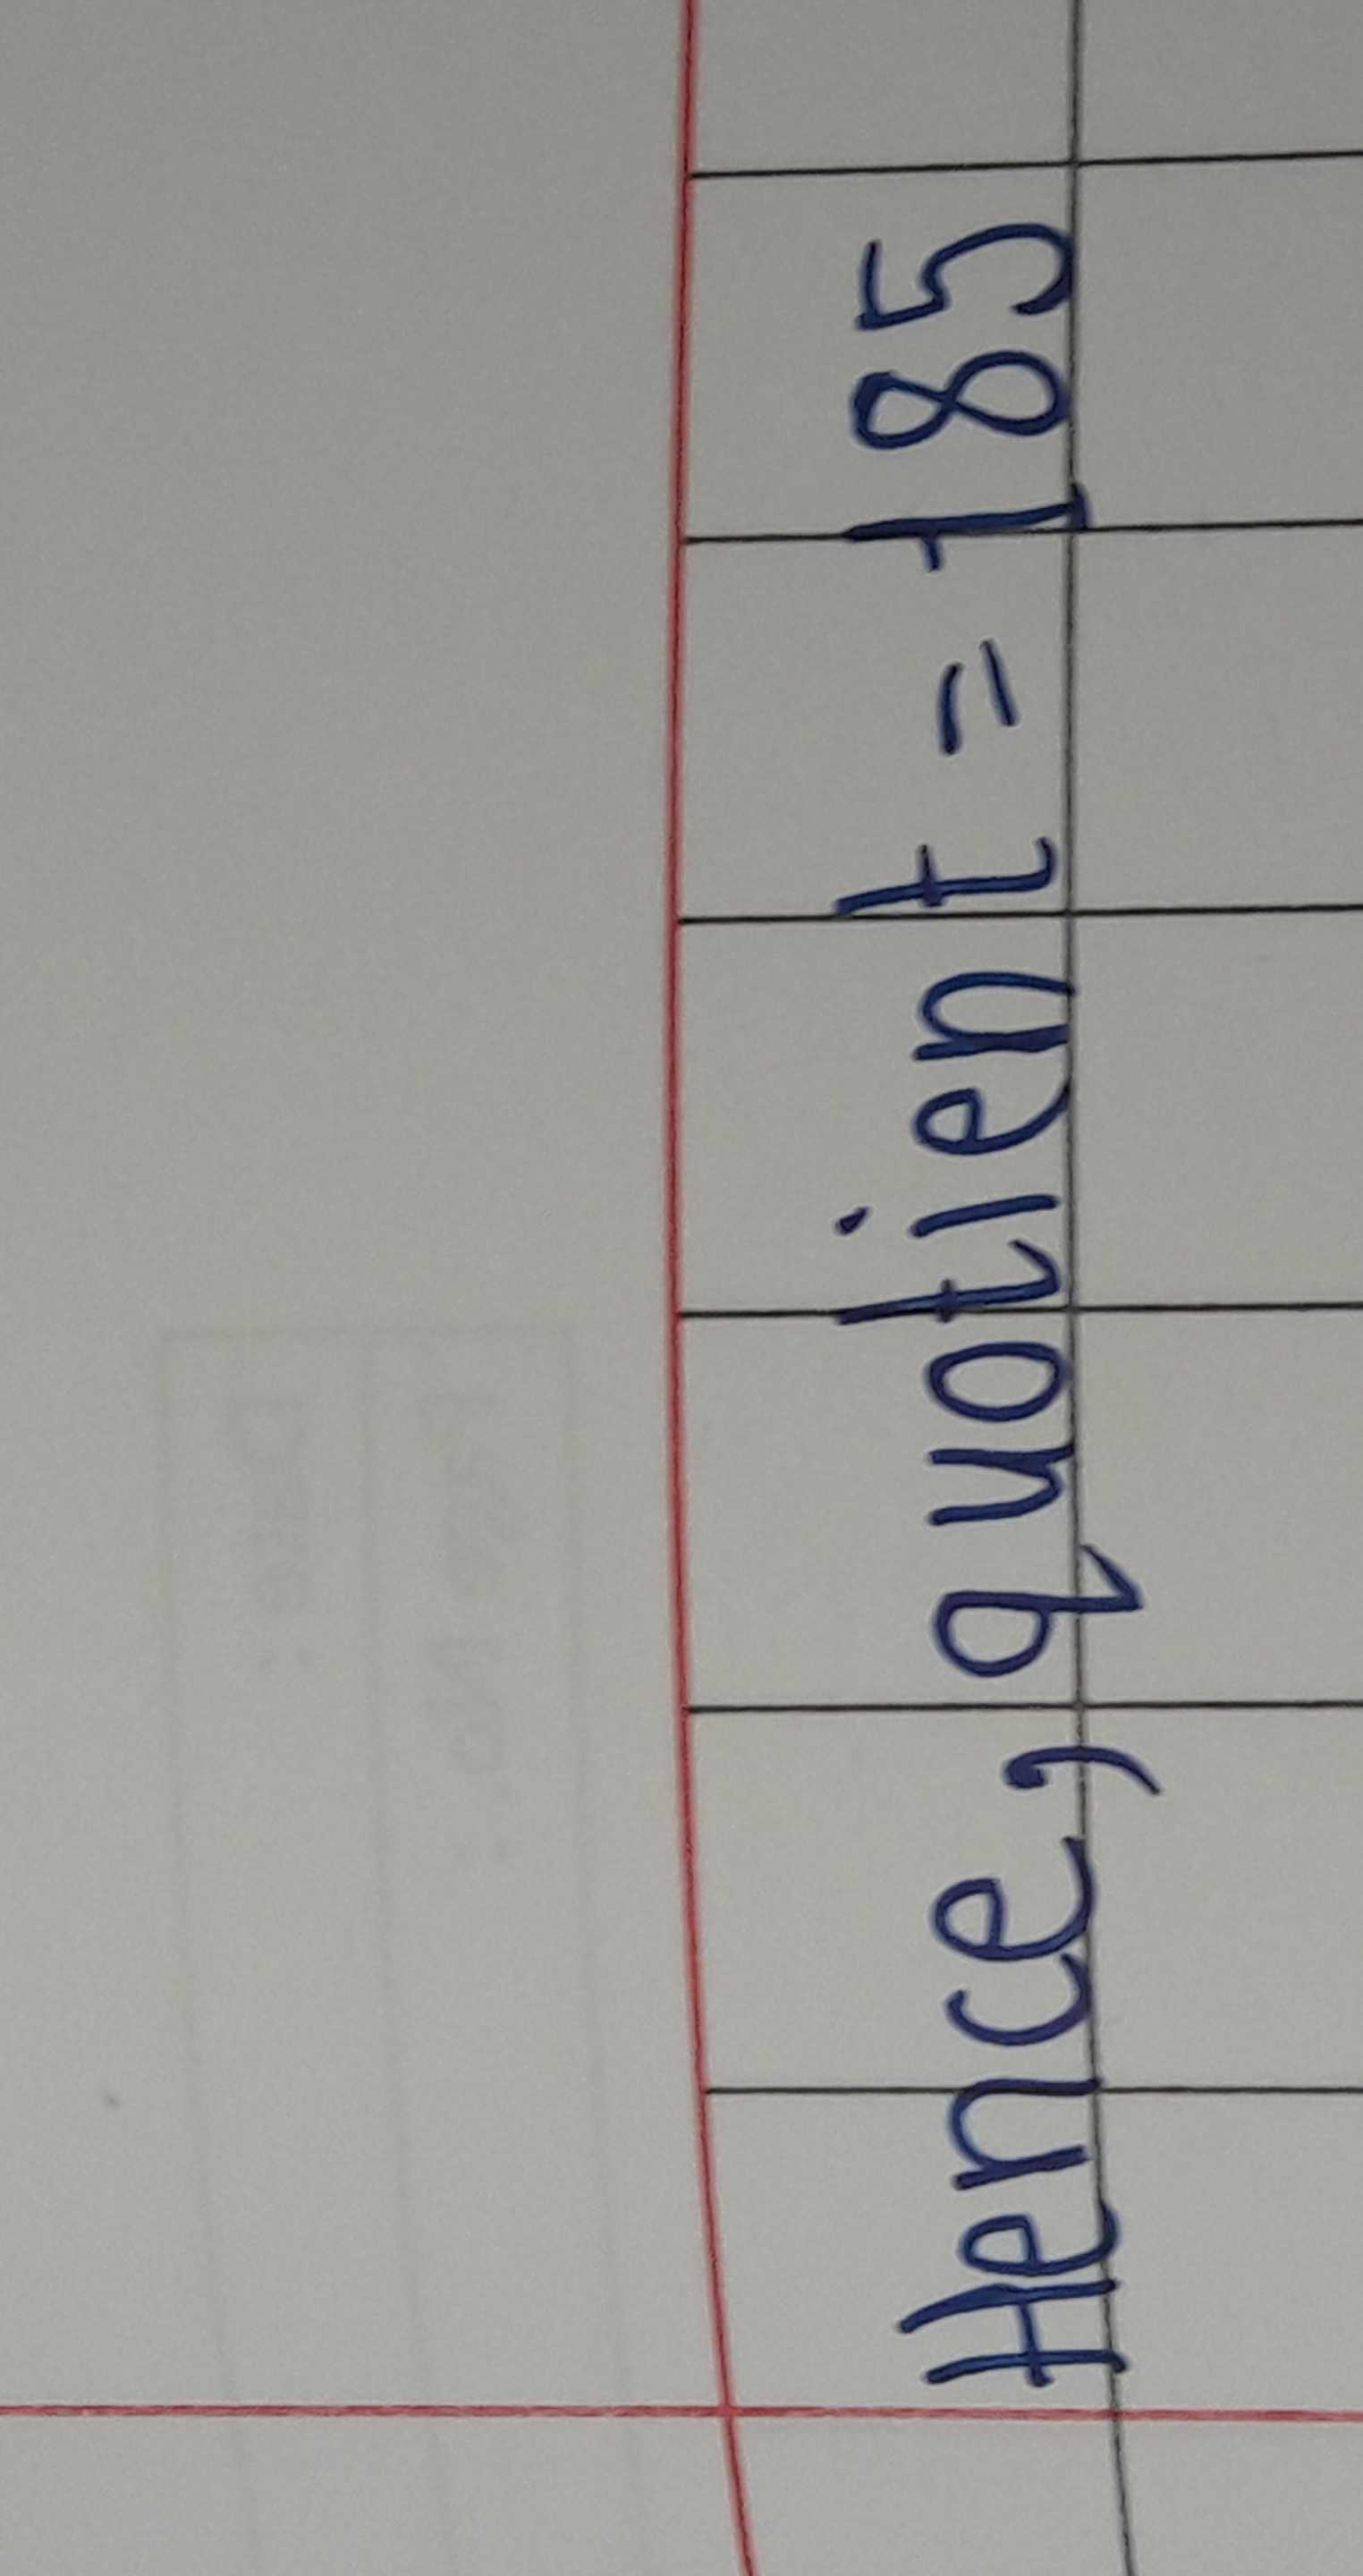 Hence, quotient = -185